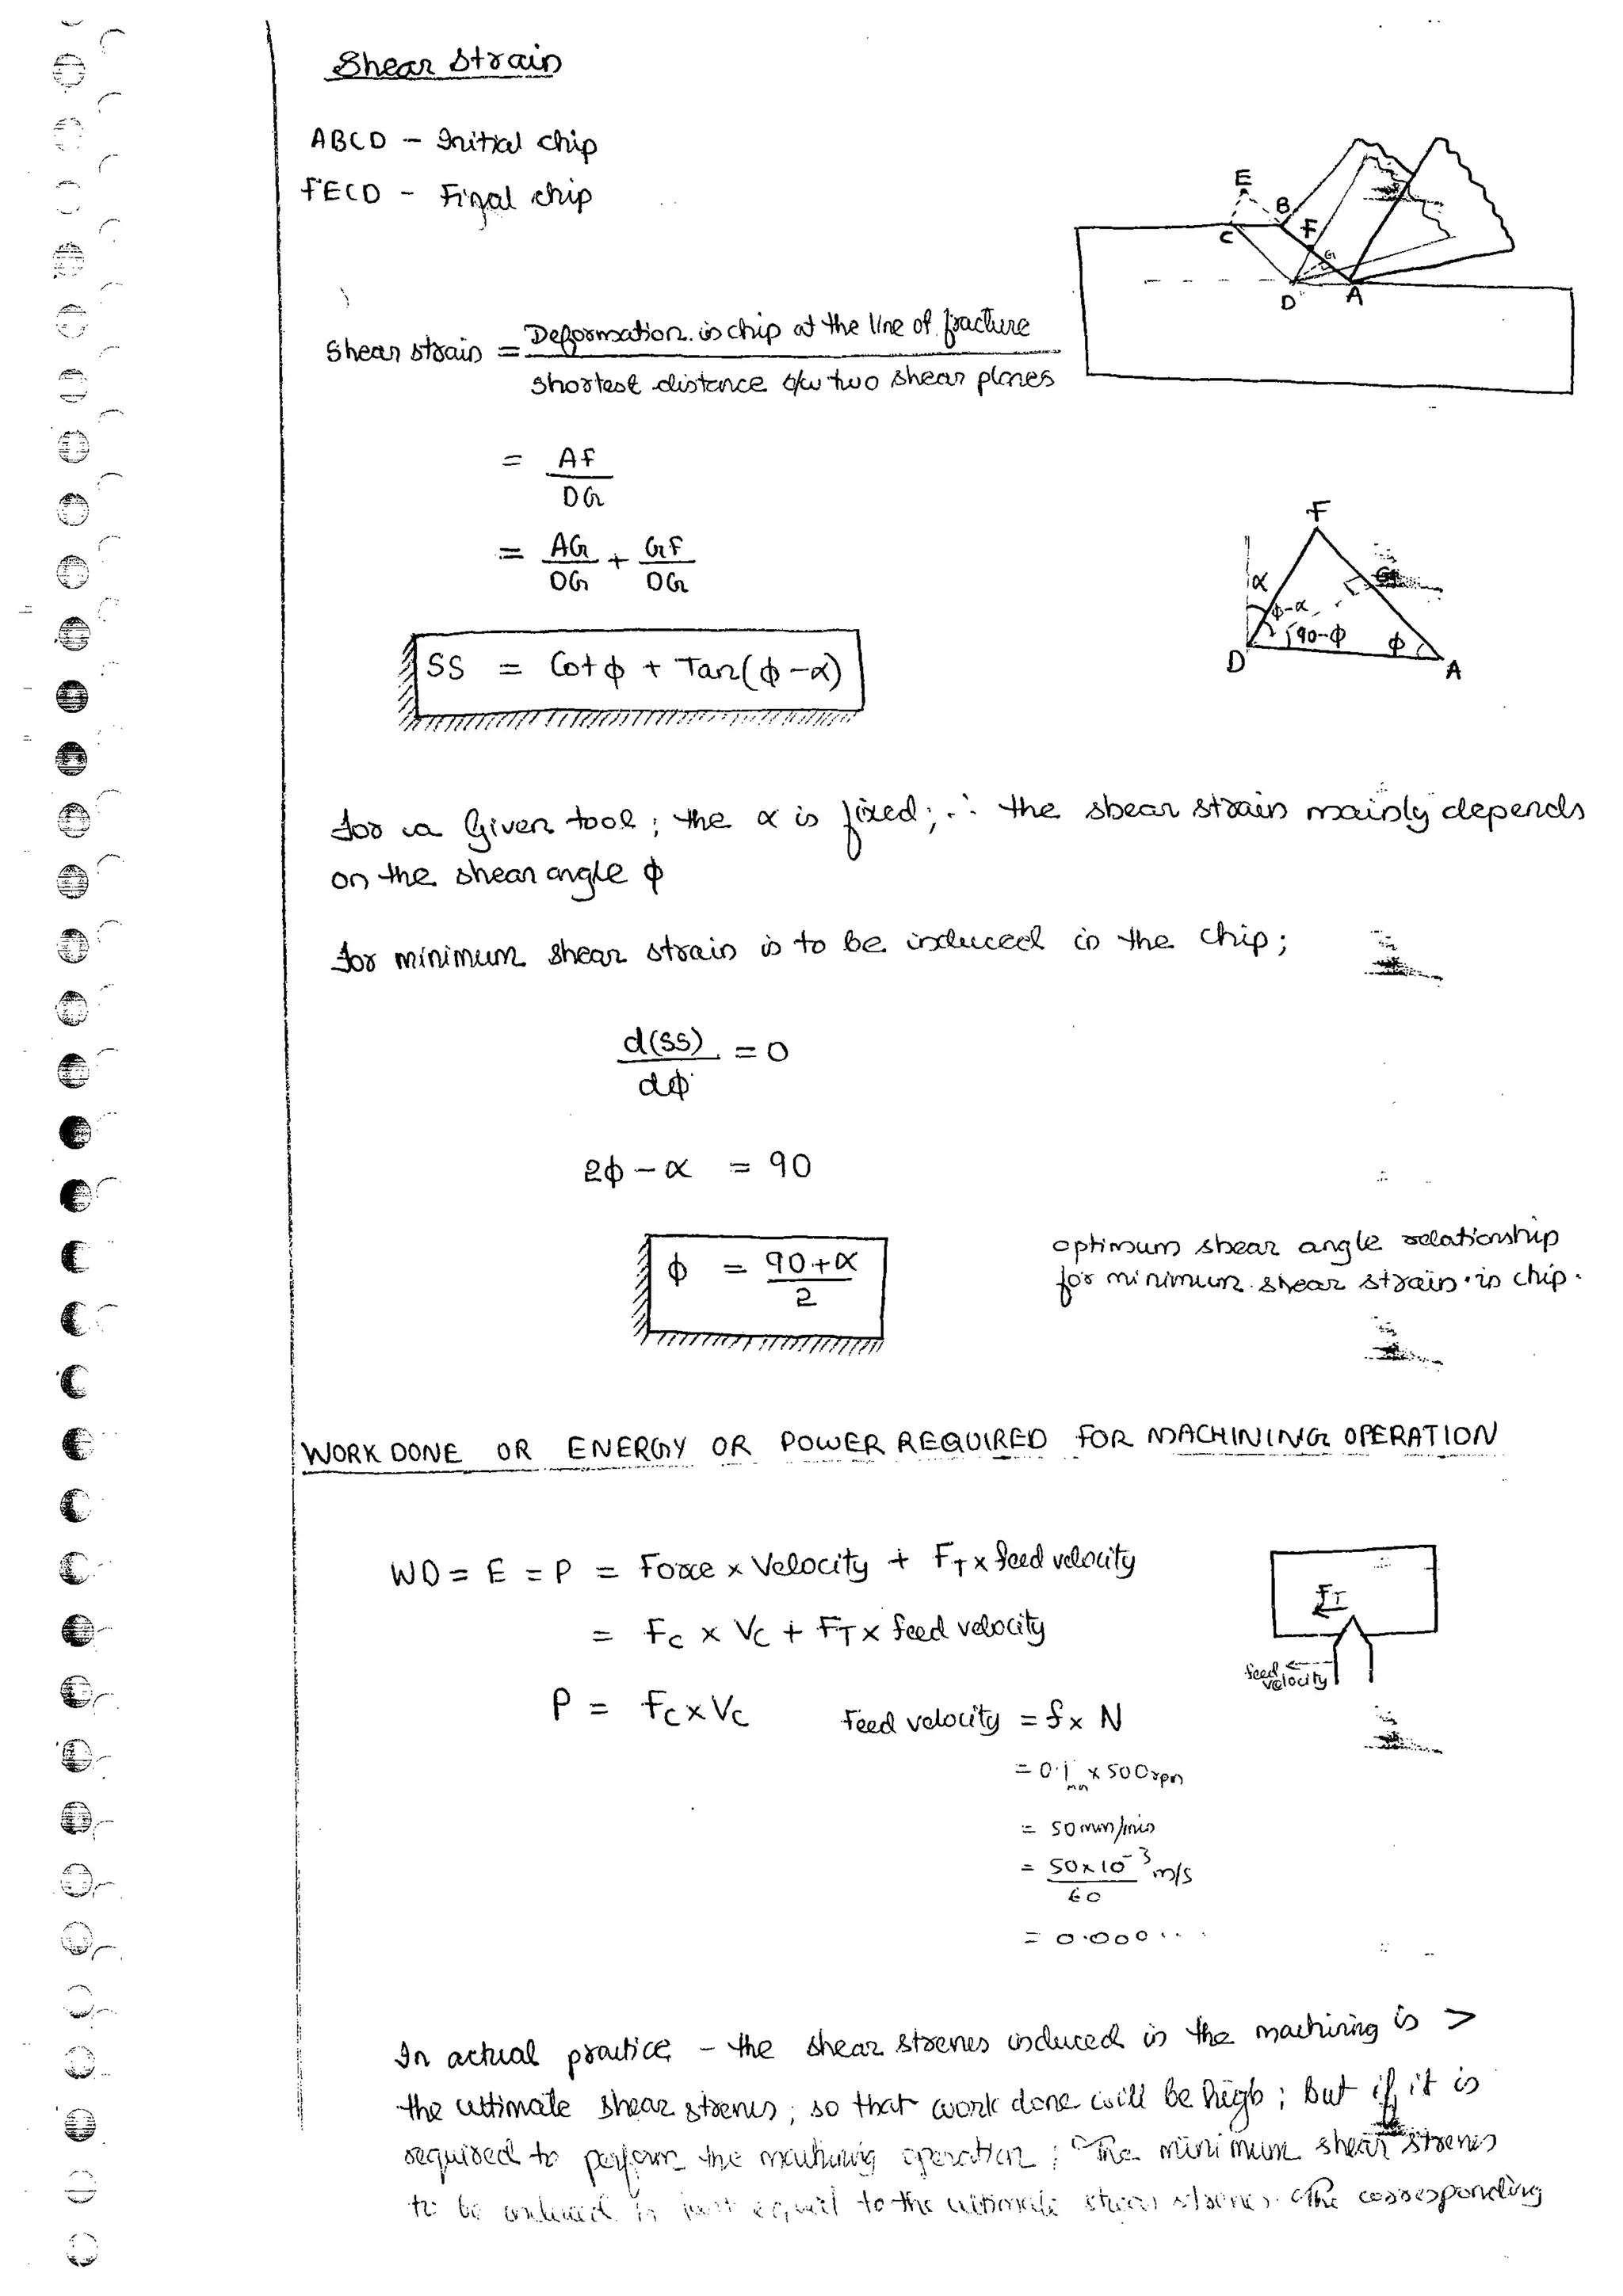 Shear strain
ABCD - Initial chip
FECD - Final chip
E
B
C
F
G
D
A
Shear strain = Deformation in chip at the line of fracture
shortest distance b/w two shear planes
= AF
DG
= AG + GF
DG DG
F
α
G
φ-α
90-φ
φ
D
A
SS = Cotφ + Tan(φ-α)
for a Given tool; the α is fixed; ∴ the shear strain mainly depends
on the shear angle φ
for minimum shear strain is to be induced in the chip;
d(SS) = 0
dφ
2φ - α = 90
φ = 90+α
2
optimum shear angle relationship
for minimum shear strain in chip.
WORK DONE OR ENERGY OR POWER REQUIRED FOR MACHINING OPERATION
WD = E = P = Force x Velocity + FT x feed velocity
= Fc x Vc + FT x feed velocity
FT
feed velocity
P = Fc x Vc
Feed velocity = f x N
= 0.1 mm x 500rpm
= 50 mm/min
= 50x10-3 m/s
60
= 0.000...
In actual practice - the shear stress induced in the machining is >
the ultimate shear stress, so that work done will be high; But if it is
required to perform the machining operation; The minimum shear stress
to be induced is just equal to the ultimate shear stress. The corresponding